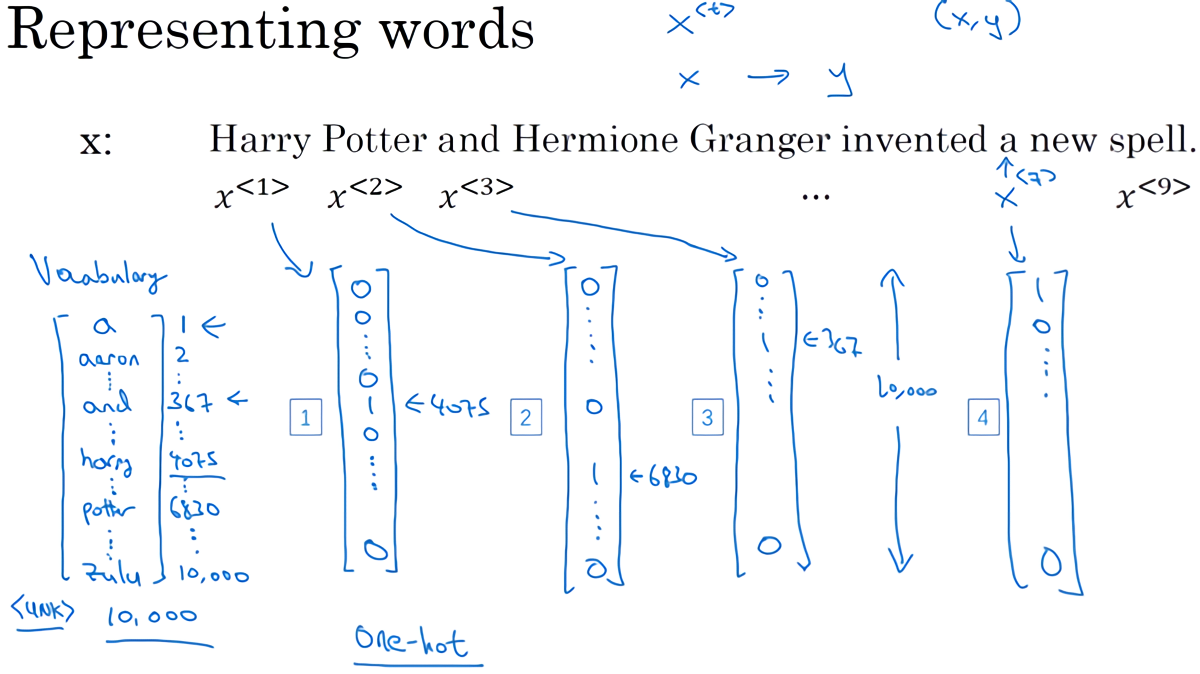 Representing words
x<t> (x,y)
x → y
x: Harry Potter and Hermione Granger invented a new spell.
x<1> x<2> x<3> ... x<7> x<9>
Vocabulary
a 1 ←
aaron 2
⋮ ⋮
and 367 ←
⋮ ⋮
harry 4075
⋮ ⋮
potter 6830
⋮ ⋮
zulu 10,000
<UNK> 10,000
1
0
0
⋮
0
1 ← 4075
0
⋮
0
2
0
⋮
0
1 ← 6830
⋮
0
3
0
⋮
1 ← 367
⋮
0
10,000
4
1
0
⋮
0
One-hot